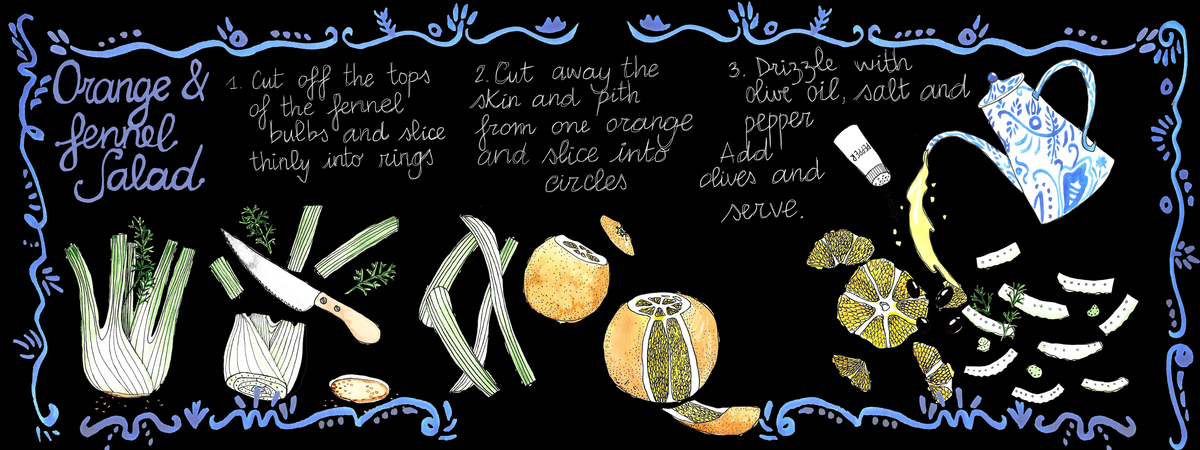 Orange &
fennel
Salad
1. Cut off the tops
of the fennel
bulbs and slice
thinly into rings
2. Cut away the
skin and pith
from one orange
and slice into
circles
3. Drizzle with
olive oil, salt and
pepper
Add
olives and
serve.
PEPPER